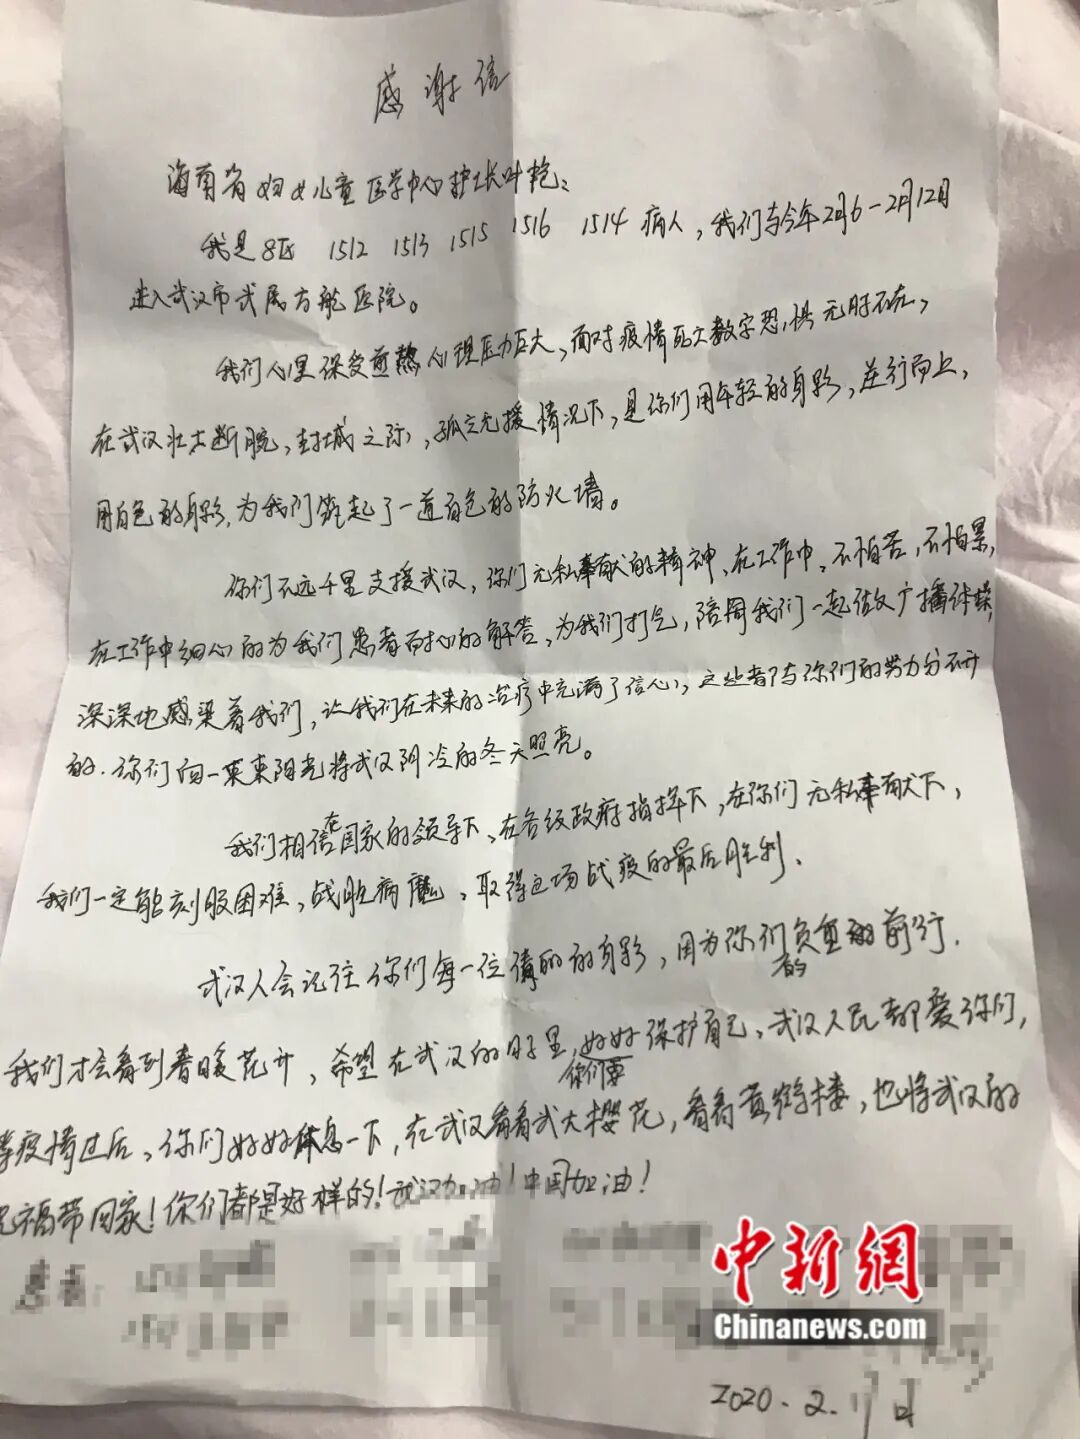 感谢信
海南省妇女儿童医学中心护士长叶艳：
我是8区 1512 1513 1515 1516 1514 病人，我们与今年2月6-2月12日
进入武汉市武展方舱医院。
我们心里保受煎熬心理压力巨大，面对疫情死亡数字恐惧无时不在，
在武汉壮士断腕、封城之际，孤立无援情况下，是你们用年轻的身影，逆行而上，
用白色的身影，为我们筑起了一道白色的防火墙。
你们不远千里支援武汉，你们无私奉献的精神、在工作中、不怕苦，不怕累，
在工作中细心的为我们患者耐心的解答，为我们打气，陪同我们一起做广播体操，
深深地感染着我们，让我们在未来的治疗中充满了信心，这些都与你们的努力分不开
的．你们向一束束阳光将武汉阴冷的冬天照亮。
我们相信在国家的领导下、在各级政府指挥下，在你们无私奉献下，
我们一定能刻服困难，战胜病魔，取得这场战疫的最后胜利．
武汉人会记住你们每一位倩丽的身影，因为你们的负重前行．
我们才会看到春暖花开，希望在武汉的日子里，你们要好好保护自己、武汉人民都爱你们，
等疫情过后、你们好好休息一下，在武汉看看武大樱花，看看黄鹤楼，也将武汉的
祝福带回家！你们都是好样的！武汉加油！中国加油！
中新網
Chinanews.com
2020.2.17日